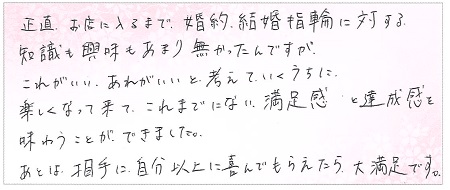 正直、お店に入るまで、婚約、結婚指輪に対する、
知識も興味もあまり無かったんですが、
これがいい、あれがいいと考えていくうちに、
楽しくなって来て、これまでにない満足感と達成感を
味わうことができました。
あとは、相手に自分以上に喜んでもらえたら、大満足です。